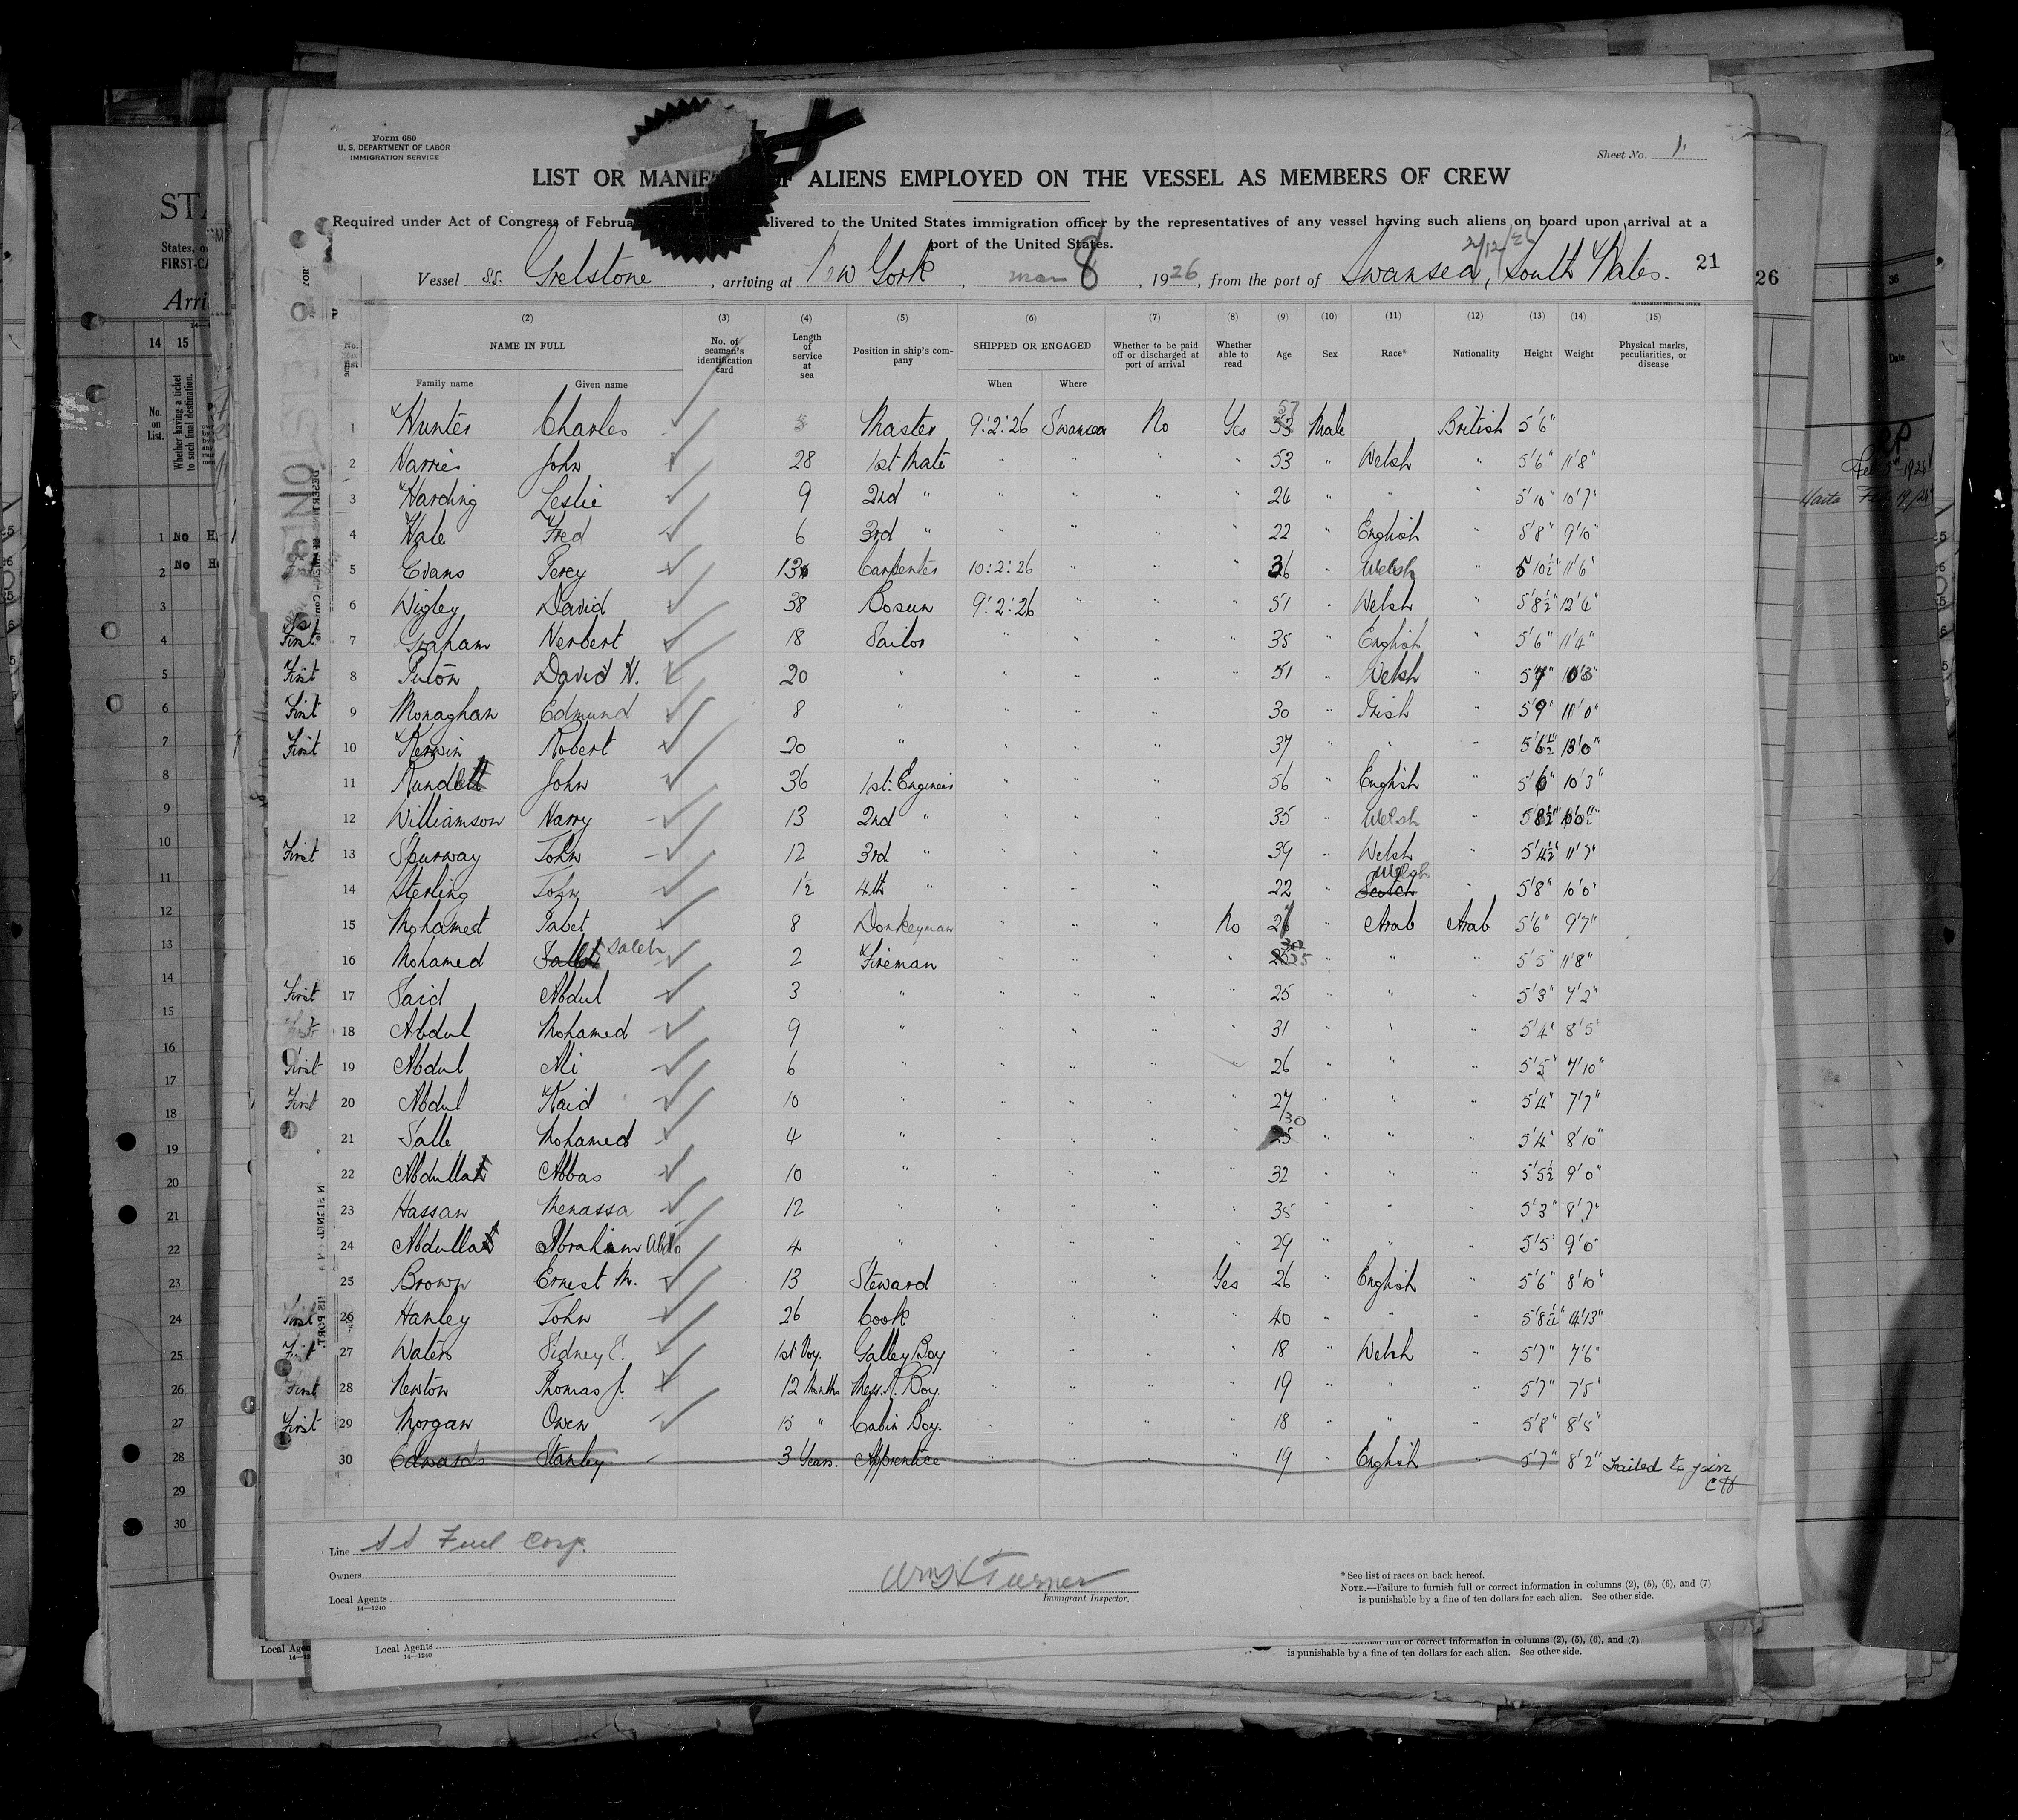 Form 680
U. S. DEPARTMENT OF LABOR
IMMIGRATION SERVICE
Sheet No. 1
LIST OR MANIF F ALIENS EMPLOYED ON THE VESSEL AS MEMBERS OF CREW
Required under Act of Congress of Februa elivered to the United States immigration officer by the representatives of any vessel having such aliens on board upon arrival at a
port of the United States.
Vessel SS. Grelstone, arriving at New York, mar 8, 1926, from the port of Swansea, South Wales. 21
(2) (3) (4) (5) (6) (7) (8) (9) (10) (11) (12) (13) (14) (15)
NAME IN FULL No. of seaman's identification card Length of service at sea Position in ship's company SHIPPED OR ENGAGED Whether to be paid off or discharged at port of arrival Whether able to read Age Sex Race* Nationality Height Weight Physical marks, peculiarities, or disease
Family name Given name When Where
1 Hunter Charles Master 9:2:26 Swansea No Yes 53 57 Male British 5'6"
2 Harries John 28 1st Mate " " " " 53 " Welsh " 5'6" 11'8"
3 Harding Leslie 9 2nd " " " " " 26 " " " 5'10" 10'7"
4 Hale Fred 6 3rd " " " " " 22 " English " 5'8" 9'10"
5 Evans Percy 13 Carpenter 10:2:26 " " " 36 " Welsh " 5'10½" 11'6"
6 Wigley David 38 Bosun 9:2:26 " " " 51 " Welsh " 5'8½" 12'4"
First 7 Graham Herbert 18 Sailor " " " " 35 " English " 5'6" 11'4"
First 8 David H. 20 " " " " " 51 " Welsh " 5'7" 10'3"
First 9 Monaghan Edmund 8 " " " " " 30 " Irish " 5'9" 11'0"
First 10 Kerwin Robert 20 " " " " " 37 " " " 5'6½" 13'0"
11 Rundell John 36 1st. Engineer " " " " 56 " English " 5'6" 10'3"
12 Williamson Harry 13 2nd " " " " " 35 " Welsh " 5'8½"
First 13 Spurway John 12 3rd " " " " " 39 " Welsh " 5'4½" 11'7"
14 Sterling John 1½ 4th " " " " " 22 " Scotch Welsh " 5'8" 10'0"
15 Mohamed Sabet 8 Donkeyman " " " No 27 " Arab Arab 5'6" 9'7"
16 Mohamed Saleh 2 Fireman " " " " 30 " " " 5'5" 11'8"
First 17 Said Abdul 3 " " " " " 25 " " " 5'3" 7'2"
18 Abdul Mohamed 9 " " " " " 31 " " " 5'4" 8'5"
First 19 Abdul Ali 6 " " " " " 26 " " " 5'5" 7'10"
First 20 Abdul Kaid 10 " " " " " 27 " " " 5'4" 7'7"
21 Salle Mohamed 4 " " " " " 25 30 " " " 5'4" 8'10"
22 Abdulla Abbas 10 " " " " " 32 " " " 5'5½ 9'0"
23 Hassan Menassa 12 " " " " " 35 " " " 5'3" 8'7"
24 Abdulla Abraham Abdo 4 " " " " " 29 " " " 5'5" 9'0"
25 Brown Ernest M. 13 Steward " " " Yes 26 " English " 5'6" 8'10"
First 26 Hanley John 26 Cook " " " " 40 " " " 14'13"
First 27 Waters Sidney E. 1st Voy. Galley Boy " " " " 18 " Welsh " 5'7" 7'6"
First 28 Newton Thomas J. 12 Months Mess. R. Boy. " " " " 19 " " " 5'7" 7'5"
First 29 Morgan Owen 15 " Cabin Boy. " " " " 18 " " " 5'8" 8'8"
30 Edwards Stanley 3 Years. Apprentice " " " " 19 " English " 5'7" 8'2" Failed to join
CH
Line S S Fuel Corp.
Owners
Local Agents
14—1240
Wm H Turner
Immigrant Inspector.
* See list of races on back hereof.
NOTE.—Failure to furnish full or correct information in columns (2), (5), (6), and (7)
is punishable by a fine of ten dollars for each alien. See other side.
Local Agents
14—1240
full or correct information in columns (2), (5), (6), and (7)
is punishable by a fine of ten dollars for each alien. See other side.